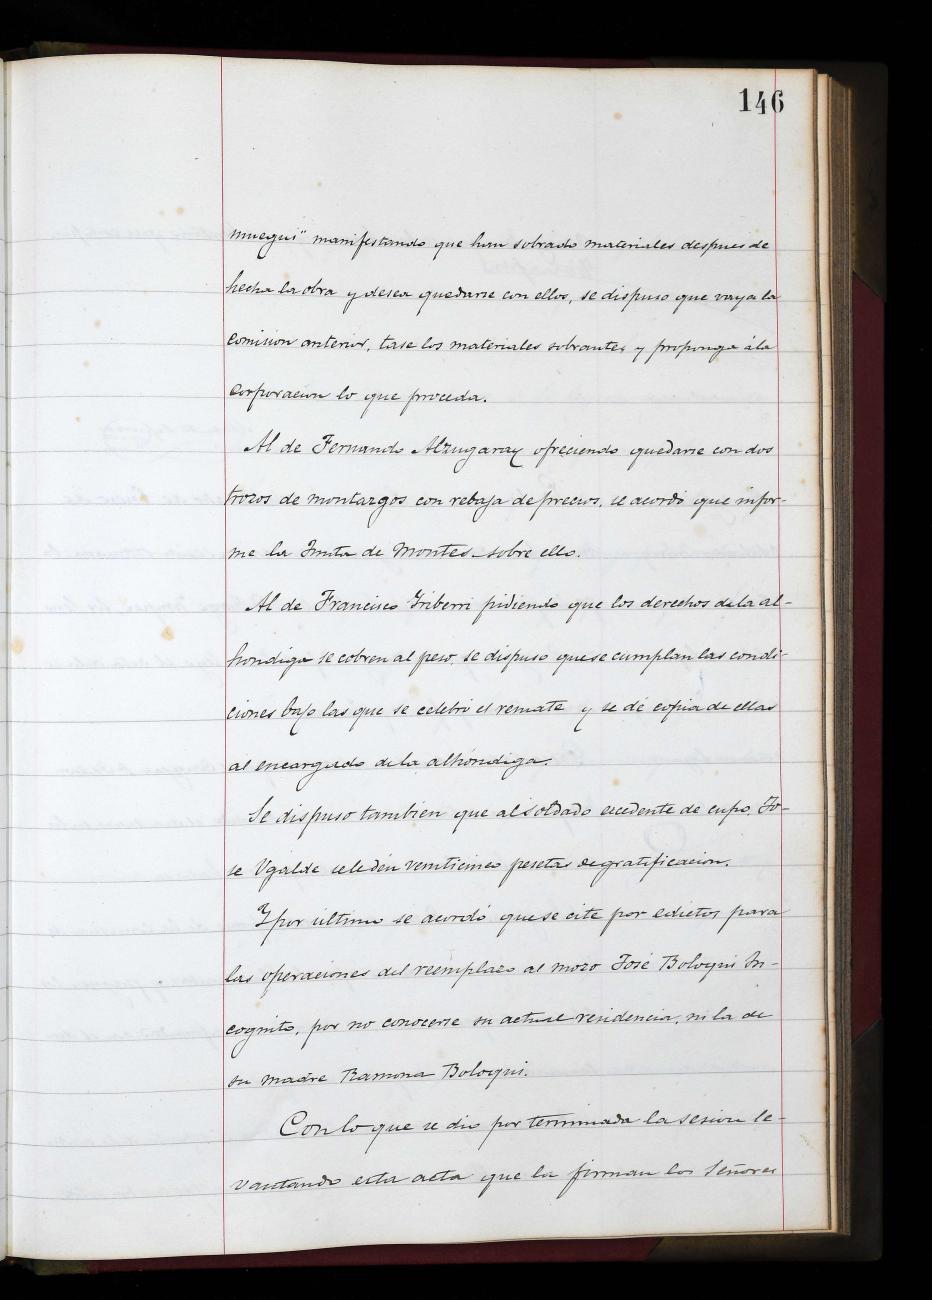 146
muegui" manifestando que han sobrado materiales despues de
hecha la obra y desea quedarse con ellos, se dispuso que vaya la
comision anterior, tase los materiales sobrantes y proponga á la
corporacion lo que proceda.
Al de Fernando Alzugaray ofreciendo quedarse con dos
trozos de montazgos con rebaja de precios, se acordó que infor-
me la Junta de Montes sobre ello.
Al de Francisco Yriberri pidiendo que los derechos de la al-
hondiga se cobren al peso, se dispuso que se cumplan las condi-
ciones bajo las que se celebró el remate y se dé copia de ellas
al encargado de la alhondiga.
Se dispuso tambien que al soldado excedente de cupo, Jo-
se Ugalde se le den veinticinco pesetas de gratificacion.
Y por último se acordó que se cite por edictos para
las operaciones del reemplazo al mozo José Boloqui In-
cognito, por no conocerse su actual residencia, ni la de
su madre Ramona Boloqui.
Con lo que se dio por terminada la sesion le-
vantando esta acta que la firman los Señores